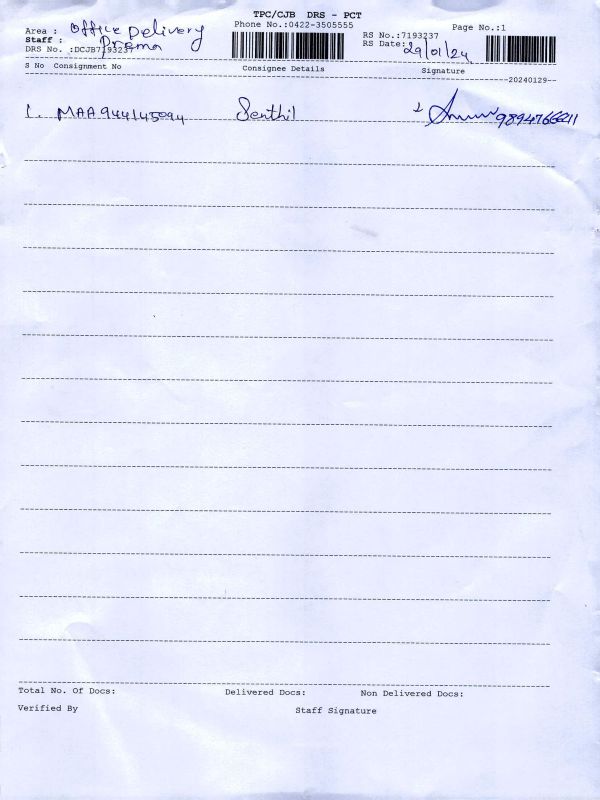 TPC/CJB DRS - PCT
Phone No.:0422-3505555
Page No.:1
Area : Office Delivery
Staff : Prema
DRS No. :DCJB7193237
RS No.:7193237
RS Date: 29/01/24
S No Consignment No Consignee Details Signature
20240129
1. MAA944145094 Senthil 9894766211
Total No. Of Docs: Delivered Docs: Non Delivered Docs:
Verified By Staff Signature